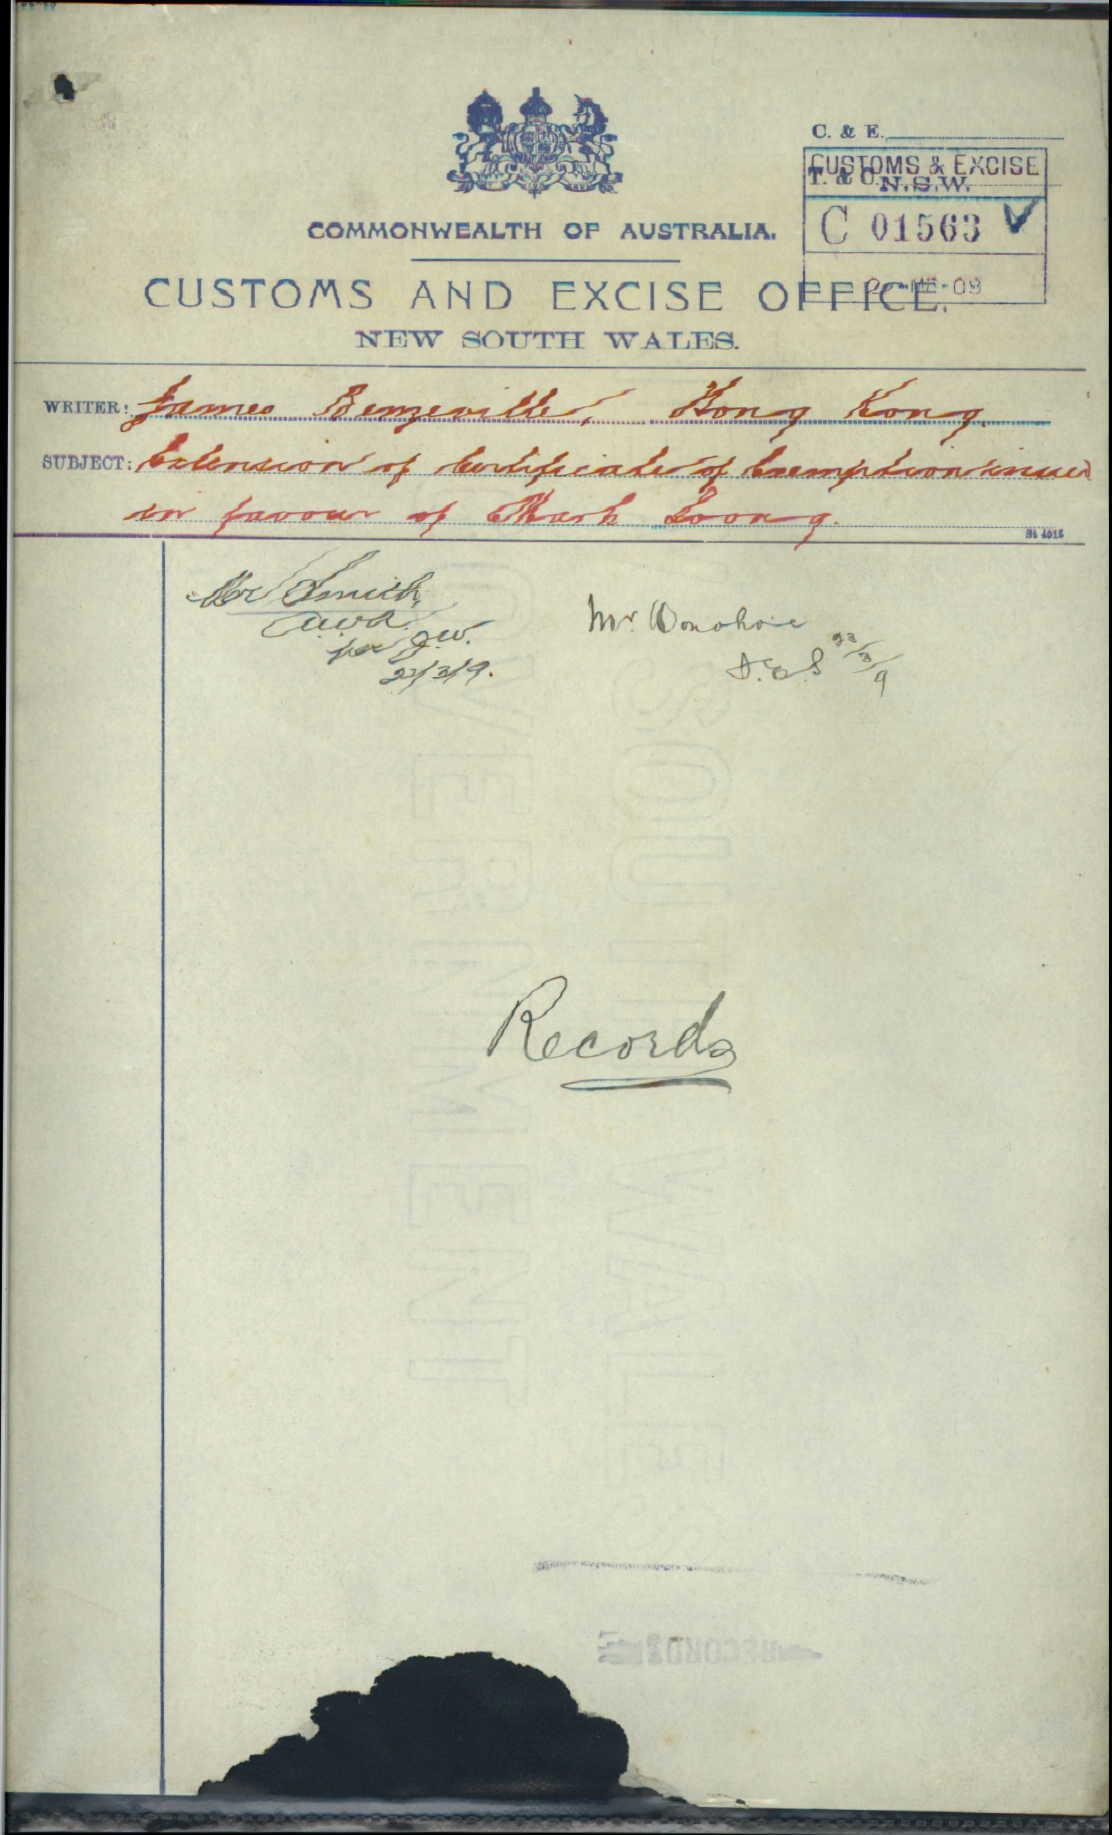 C. & E.
CUSTOMS & EXCISE
T. & C.
N.S.W.
C 01563
COMMONWEALTH OF AUSTRALIA.
CUSTOMS AND EXCISE OFFICE.
NEW SOUTH WALES.
WRITER: James Benzeville, Hong Kong.
SUBJECT: Extension of Certificate of Exemption issued
in favour of Mark Loong.
St 4015
Mr Smith
per J.W.
22/3/9.
Mr. Donohoe
D.E.S 22/3/9
Records
SOUTH WALES
GOVERNMENT
RECORDS